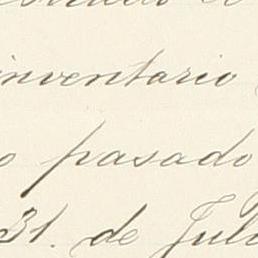 inventario
o pasado
31. de Jul